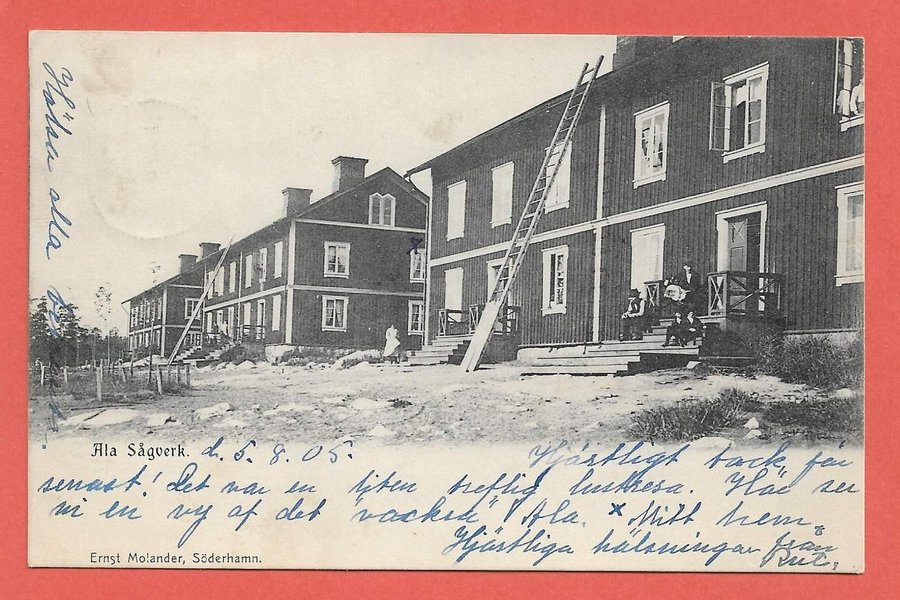 Hälsa alla bekanta.
Ala Sågverk. d. 5. 8. 05.
Hjärtligt tack för
senast! Det var en liten treflig lustresa. Här ser
vi en vy af det "vackra" Ala. x Mitt hem.
Hjärtliga hälsningar från
Rut.
Ernst Molander, Söderhamn.
x